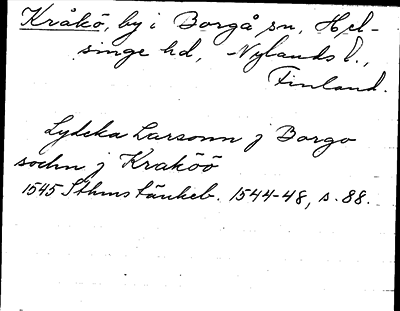 Kråkö, by i Borgå sn, Hel-
singe hd, Nylands l.,
Finland.
Lydeka Larsonn j Borgo
sochn j Kraköö
1545 Sthms tänkeb. 1544-48, s. 88.